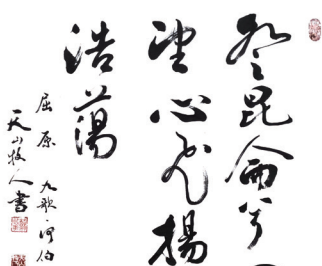 登昆侖兮四
望心飛揚兮
浩蕩
屈原 九歌 河伯
天山牧人書